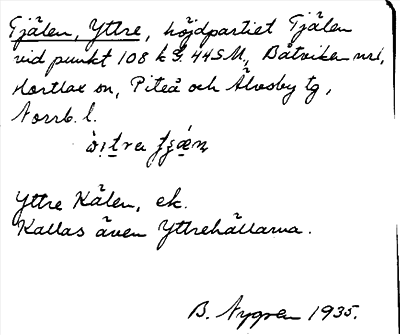 Tjälen, Yttre, höjdpartiet Tjälen
vid punkt 108 k J. 44 S M, Båtviken nr 1,
Hortlax sn, Piteå och Älvsby tg,
Norrb. l.
Yttre Kälen, ek.
Kallas även Yttrehällarna.
B. Nygren 1935.